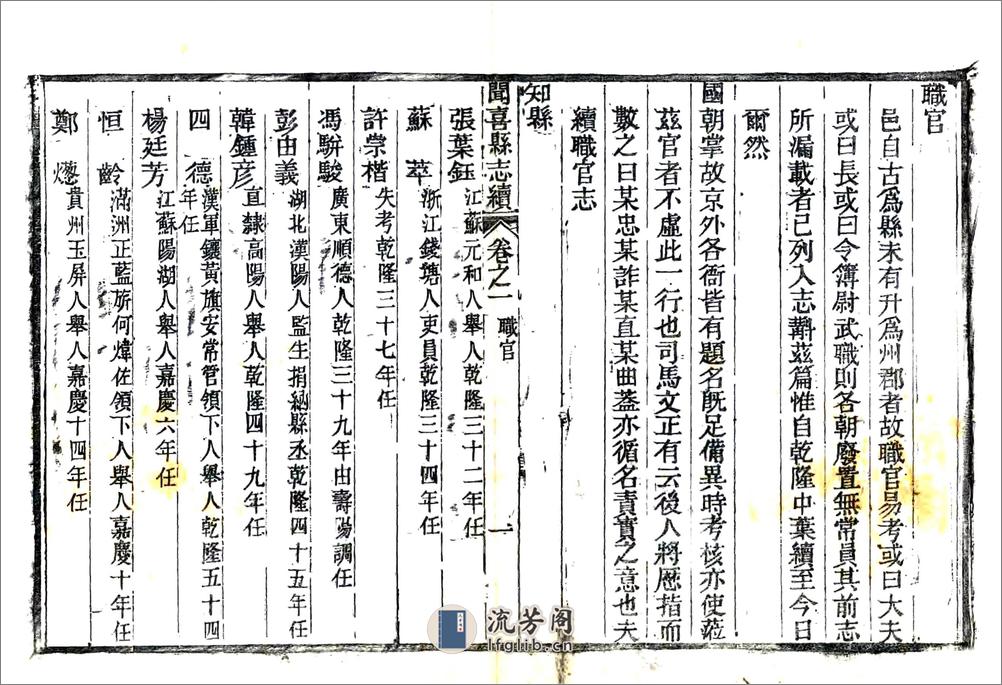 職官
邑自古爲縣未有升爲州郡者故職官易考或曰大夫
或曰長或曰令簿尉武職則各朝廢置無常員其前志
所漏載者已列入志斠茲篇惟自乾隆中葉續至今日
爾然
國朝掌故京外各衙皆有題名旣足備異時考核亦使蒞
茲官者不虛此一行也司馬文正有云後人將歷指而
數之曰某忠某詐某直某曲葢亦循名責實之意也夫
續職官志
知縣
聞喜縣志續 卷之一 職官 一
張葉鈺 江蘇元和人舉人乾隆三十二年任
蘇萃 浙江錢塘人吏員乾隆三十四年任
許崇楷 失考乾隆三十七年任
馮駢駿 廣東順德人乾隆三十九年由壽陽調任
彭由義 湖北漢陽人監生捐納縣丞乾隆四十五年任
韓鍾彦 直隸高陽人舉人乾隆四十九年任
四德 漢軍鑲黃旗安常管領下人舉人乾隆五十四年任
楊廷芳 江蘇陽湖人舉人嘉慶六年任
恒齡 滿洲正藍旂何煒佐領下人舉人嘉慶十年任
鄭㷮 貴州玉屏人舉人嘉慶十四年任
流芳阁
lfglib.cn